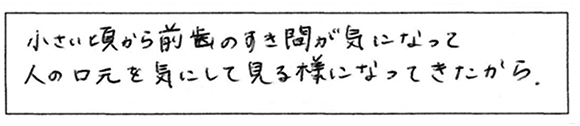 小さい頃から前歯のすき間が気になって
人の口元を気にして見る様になってきたから.